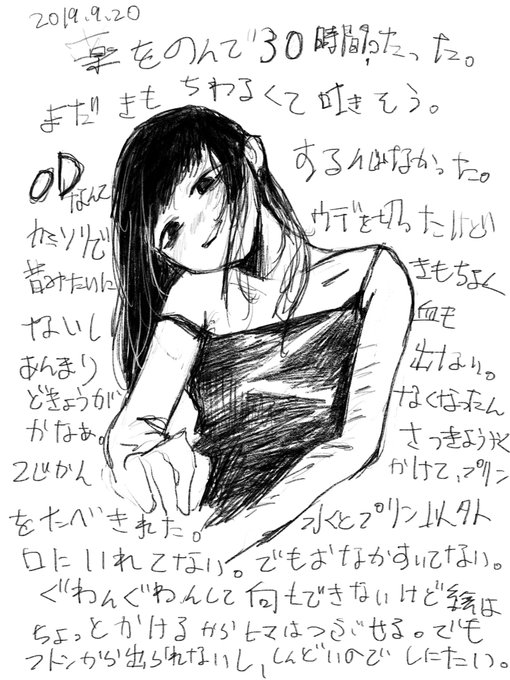 2019.9.20
薬をのんで30時間たった。
まだきもちわるくて吐きそう。
ODなんてするんじゃなかった。
カミソリでウデを切ったけど
昔みたいにきもちよく
ないし血も
あんまり出ない。
どきょうがなくなったん
かなぁ。さっきようやく
2じかんかけて、プリン
をたべきれた。水とプリン以外
口にいれてない。でもおなかすいてない。
ぐわんぐわんして何もできないけど絵は
ちょっとかけるからヒマはつぶせる。でも
フトンから出られないし、しんどいのでしにたい。